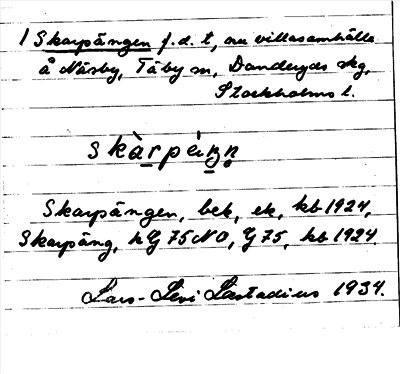 1 Skarpängen f.d. t, nu villasamhälle
å Näsby, Täby sn, Danderyds skg,
Stockholms l.
skàrpèŋn̥
Skarpängen, bek, ek, kb 1924,
Skarpäng, hG 75 NO, G 75, kb 1924
Lars-Levi Læstadius 1934.